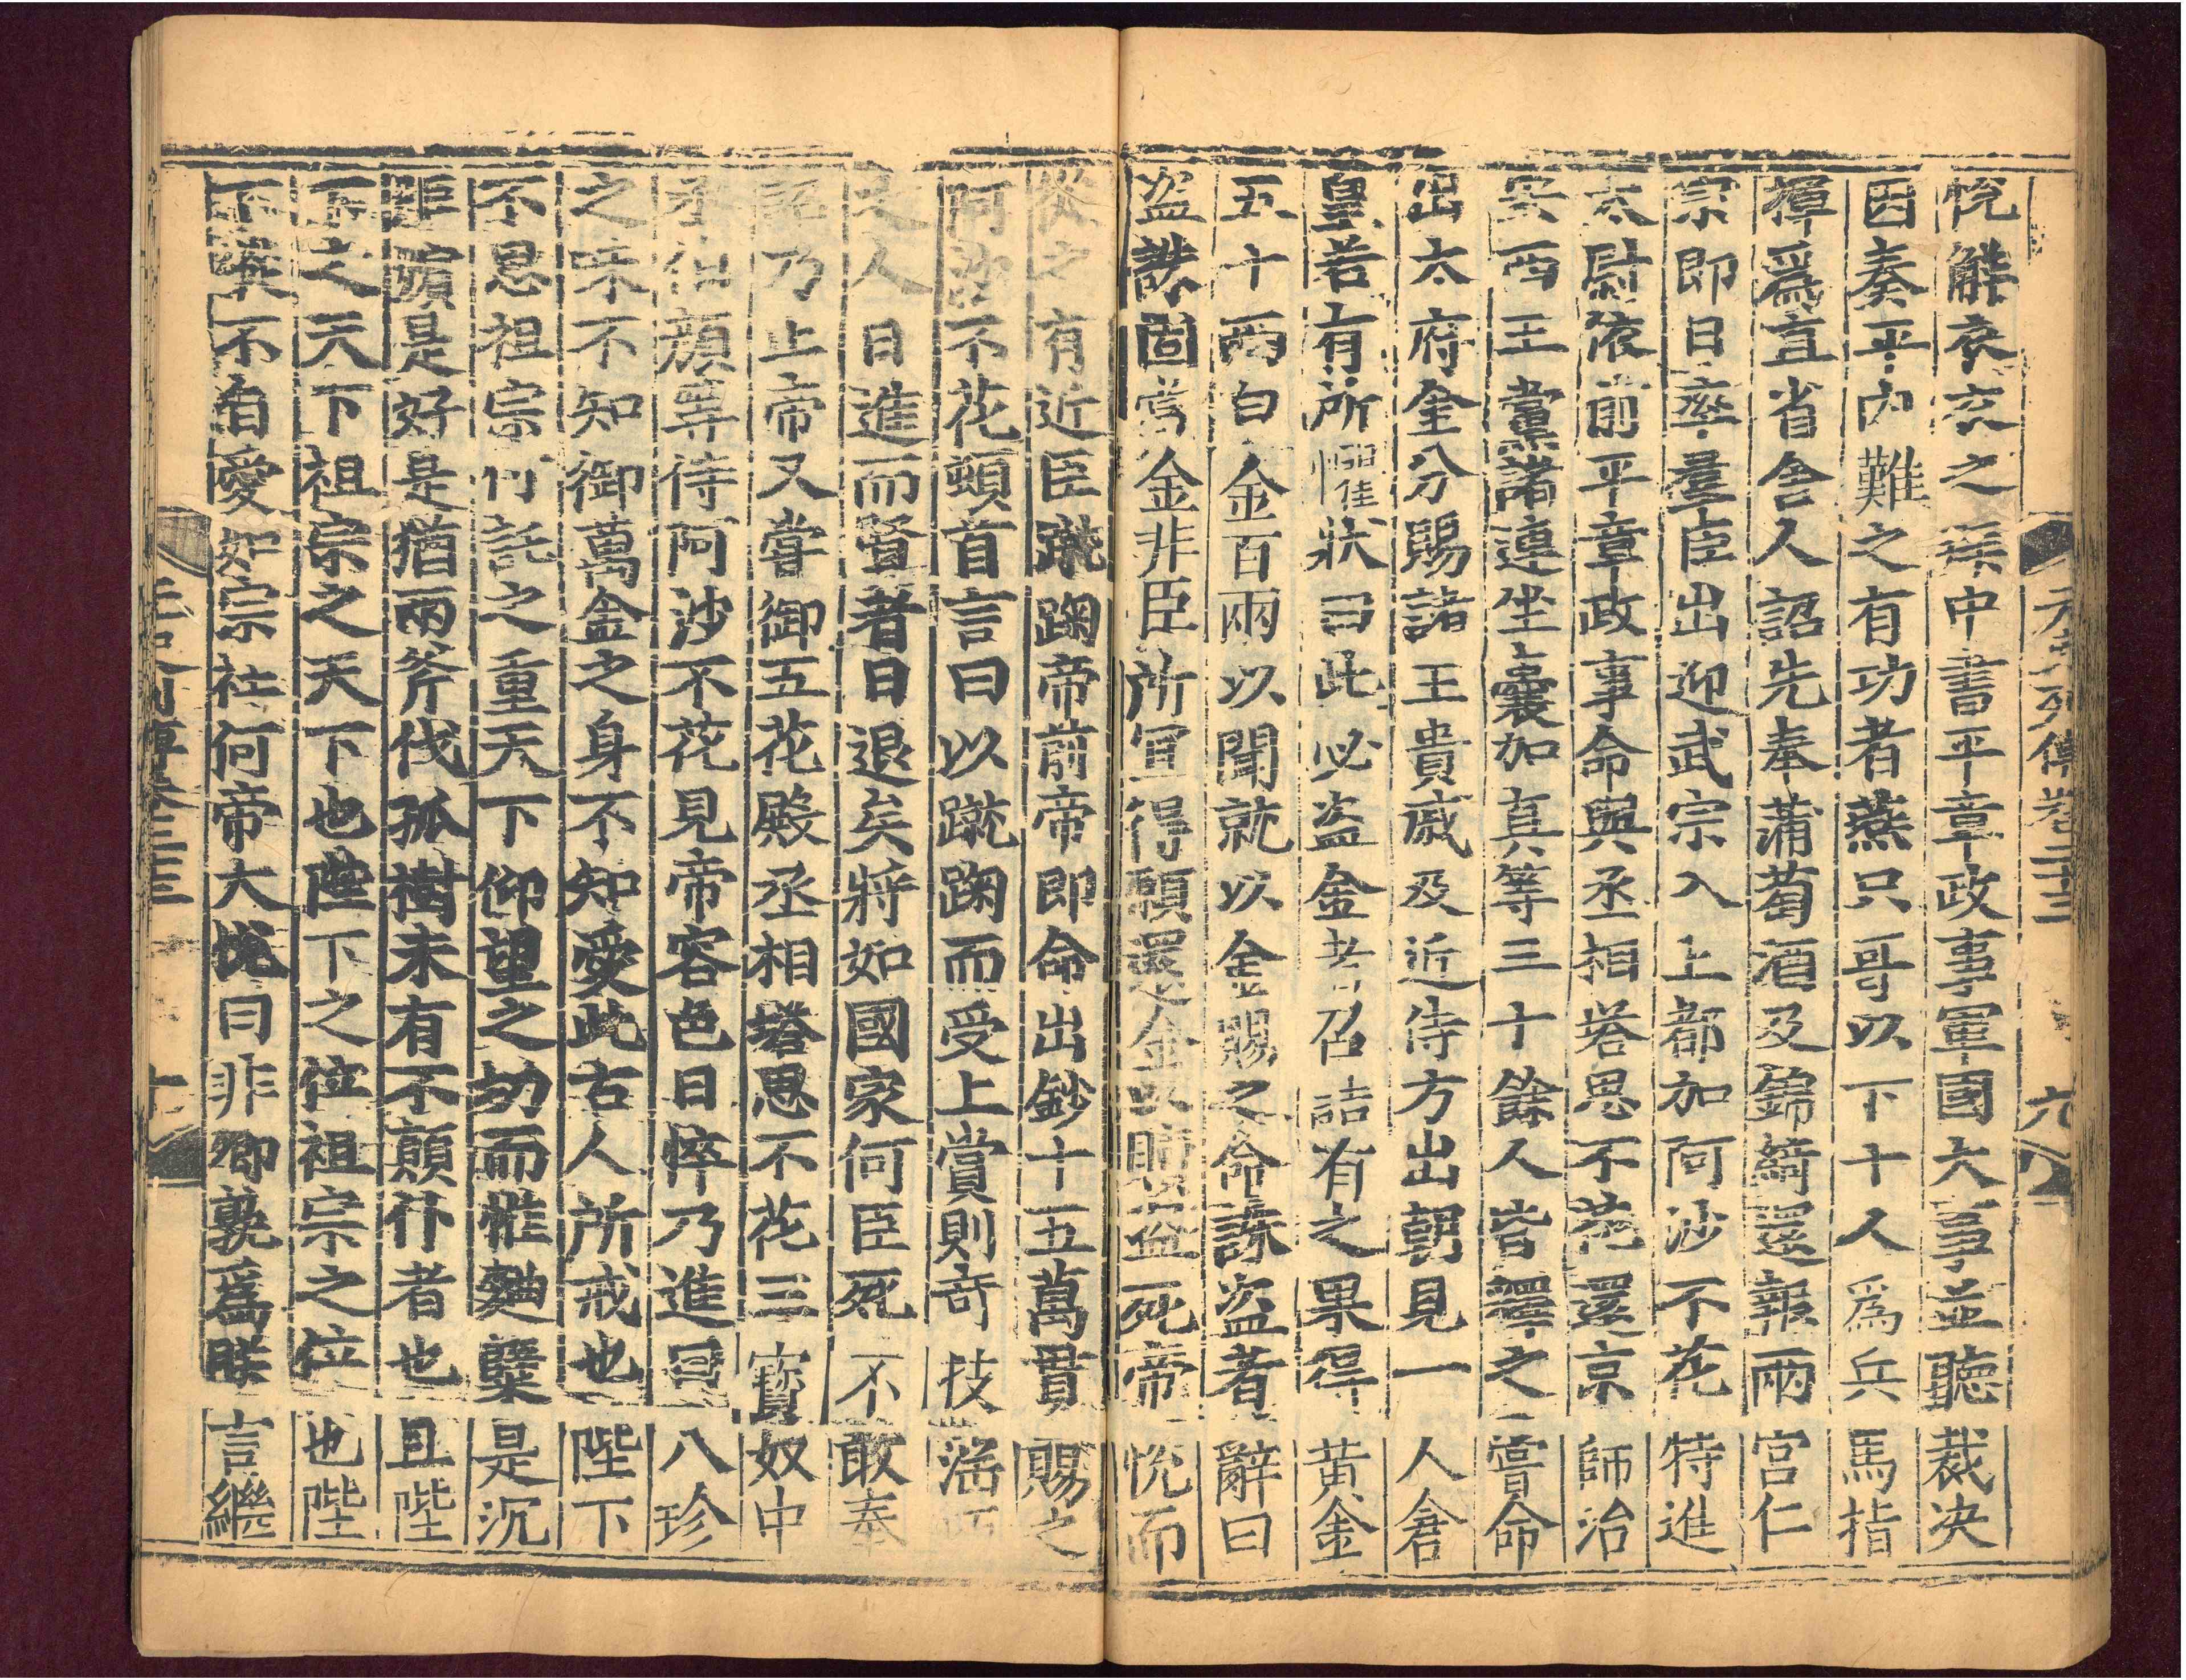 元史列傳卷二十三 六
悅解衣衣之 葉中書平章政事軍國大事並聽裁决
因奏平內難之有功者燕只哥以下十人爲兵馬指
揮爲直省舍人詔先奉蒲萄酒及錦綺還報兩宮仁
宗即日率羣臣出迎武宗入上都加阿沙不花特進
太尉依前平章政事命與丞相塔思不花還京師治
安西王黨諸連坐囊加真等三十餘人皆釋之嘗命
出太府金分賜諸王貴戚及近侍方出朝見一人倉
皇若有所懼狀曰此必盗金者召詰有之果得黃金
五十兩白金百兩以聞就以金賜之命誅盗者辭曰
盗誅固當金非臣所宜得願還金以贖盗死帝悅而
從之有近臣蹴踘帝前帝即命出鈔十五萬貫賜之
阿沙不花頓首言曰以蹴踘而受上賞則奇技滛巧
之人日進而賢者日退矣將如國家何臣死不敢奉
詔乃止帝又嘗御五花殿丞相塔思不花三寳奴中
丞伯顏等侍阿沙不花見帝容色日悴乃進曰八珍
之味不知御萬金之身不知愛此古人所戒也陛下
不思祖宗付託之重天下仰望之切而惟麴蘖是沉
姬嬪是好是猶兩斧伐孤樹未有不顛仆者也且陛
下之天下祖宗之天下也陛下之位祖宗之位也陛
下縱不自愛如宗社何帝大悅曰非卿孰爲朕言繼
元史列傳卷二十三 七